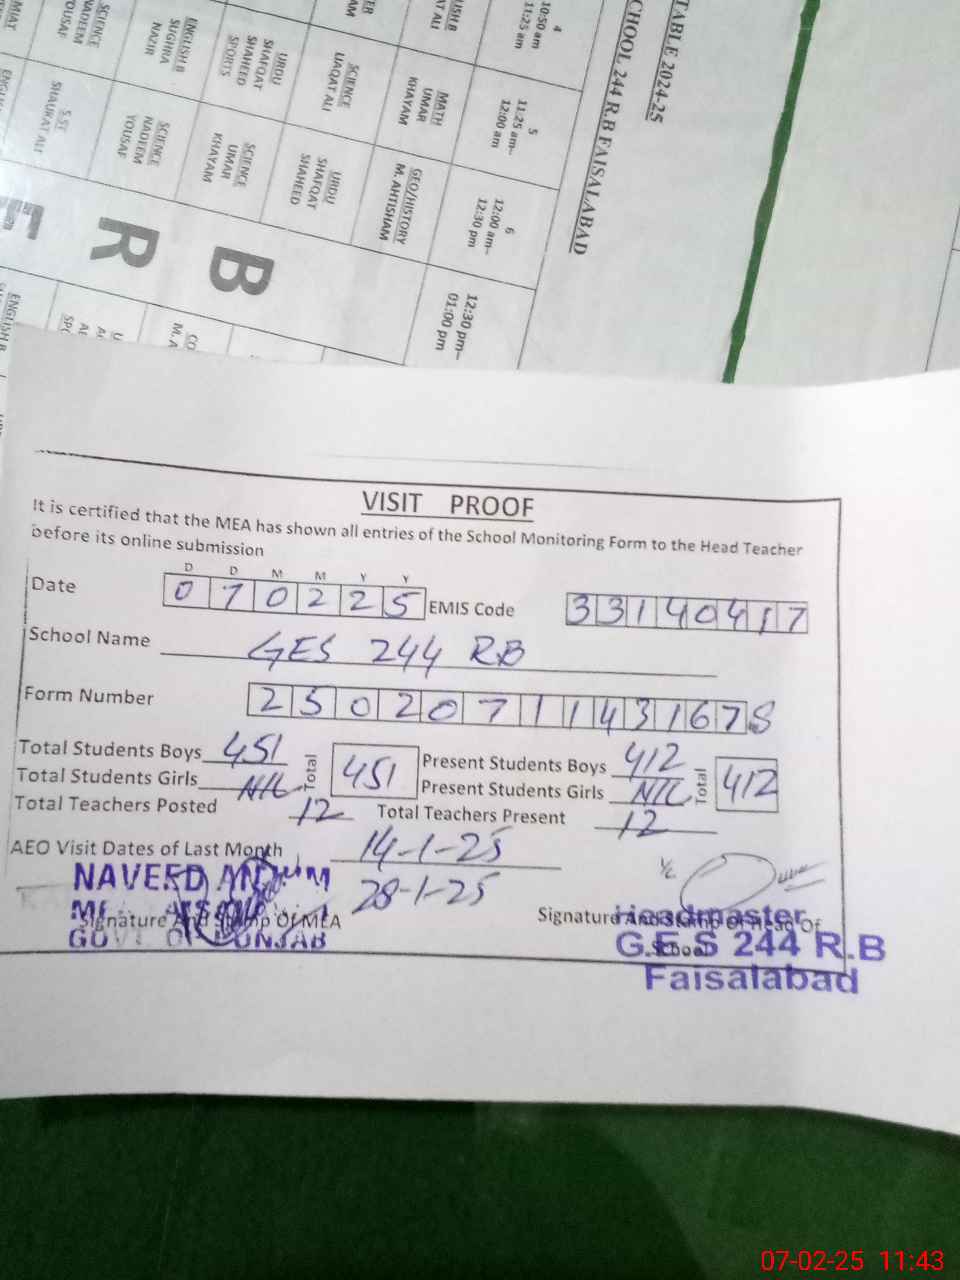 TABLE 2024-25
CHOOL 244 R.B FAISALABAD
4
10:50 am
11:25 am
5
11:25 am–
12:00 am
6
12:00 am–
12:30 pm
12:30 pm–
01:00 pm
MATH
UMAR
KHAYAM
GEO/HISTORY
M. AHTISHAM
SCIENCE
LIAQAT ALI
URDU
SHAFQAT
SHAHEED
URDU
SHAFQAT
SHAHEED
SPORTS
SCIENCE
UMAR
KHAYAM
ENGLISH B
SUGHRA
NAZIR
SCIENCE
NADEEM
YOUSAF
SCIENCE
NADEEM
YOUSAF
S.ST
SHAUKAT ALI
B
R
E
ENGLISH B
VISIT PROOF
It is certified that the MEA has shown all entries of the School Monitoring Form to the Head Teacher
before its online submission
D D M M Y Y
Date 0 7 0 2 2 5 EMIS Code 3 3 1 4 0 4 1 7
School Name GES 244 RB
Form Number 2 5 0 2 0 7 1 1 4 3 1 6 7 8
Total Students Boys 451 Total 451 Present Students Boys 412 Total 412
Total Students Girls NIL Present Students Girls NIL
Total Teachers Posted 12 Total Teachers Present 12
AEO Visit Dates of Last Month 14-1-25
28-1-25
NAVEED
Signature And Stamp Of MEA
GOVT OF PUNJAB
Signature And Stamp Of Head Of
School
Headmaster
G.E.S 244 R.B
Faisalabad
07-02-25 11:43